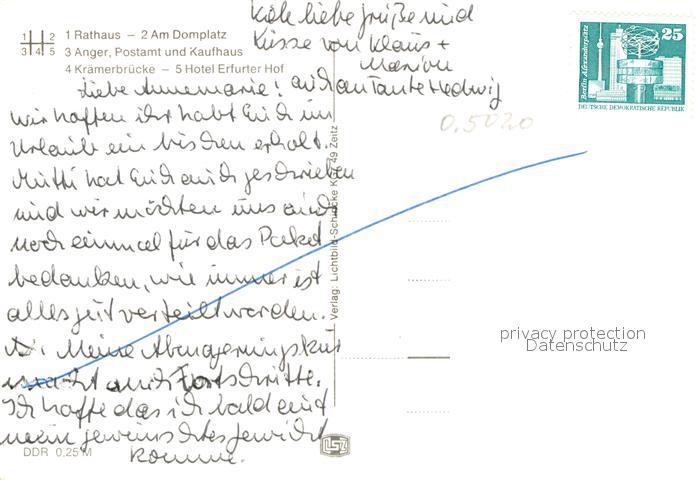 1 Rathaus – 2 Am Domplatz
3 Anger, Postamt und Kaufhaus
4 Krämerbrücke – 5 Hotel Erfurter Hof
1 2
3 4 5
Liebe Annemarie!
wir hoffen ihr habt Euch im
Urlaub ein bischen erholt.
Mutti hat Euch auch geschrieben
und wir möchten uns auch
noch einmal für das Paket
bedanken, wie immer ist
alles gut verteilt worden.
Meine Abmagerungskur
macht auch Fortschritte.
Ich hoffe das ich bald auf
mein gewünschtes Gewicht
komme.
liebe Grüße und
Küsse von Klaus +
Marion
auch an Tante Hedwig
DDR 0,25 M
Verlag: Lichtbild-Schincke KG, 49 Zeitz
Berlin Alexanderplatz
25
DEUTSCHE DEMOKRATISCHE REPUBLIK
0.5020
privacy protection
Datenschutz